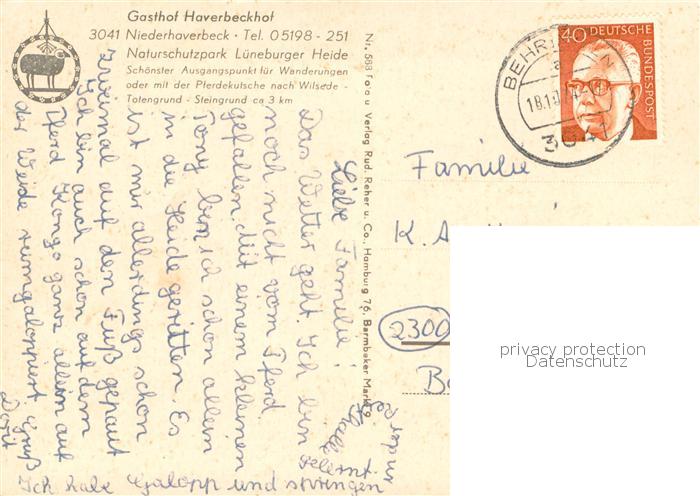 Gasthof Haverbeckhof
3041 Niederhaverbeck · Tel. 05198 - 251
Naturschutzpark Lüneburger Heide
Schönster Ausgangspunkt für Wanderungen
oder mit der Pferdekutsche nach Wilsede -
Totengrund - Steingrund ca 3 km
Nr. 588 Foto u Verlag Rud. Reher u. Co., Hamburg 76, Barmbeker Markt 9
40 DEUTSCHE
BUNDESPOST
Liebe Familie!
Das Wetter geht. Ich bin
noch nicht vom Pferd
gefallen. Mit einem kleinen
Tony bin ich schon allein
in die Heide geritten. Es
ist mir allerdings schon
zweimal auf den Fuß getraut
Ich bin auch schon auf dem
Pferd Kongo ganz allein auf
der Weide rumgaloppiert Gruß
Dorit
Ich habe Galopp und springen
in der Halle
gelernt.
Familie
K. A
2300
privacy protection
Datenschutz